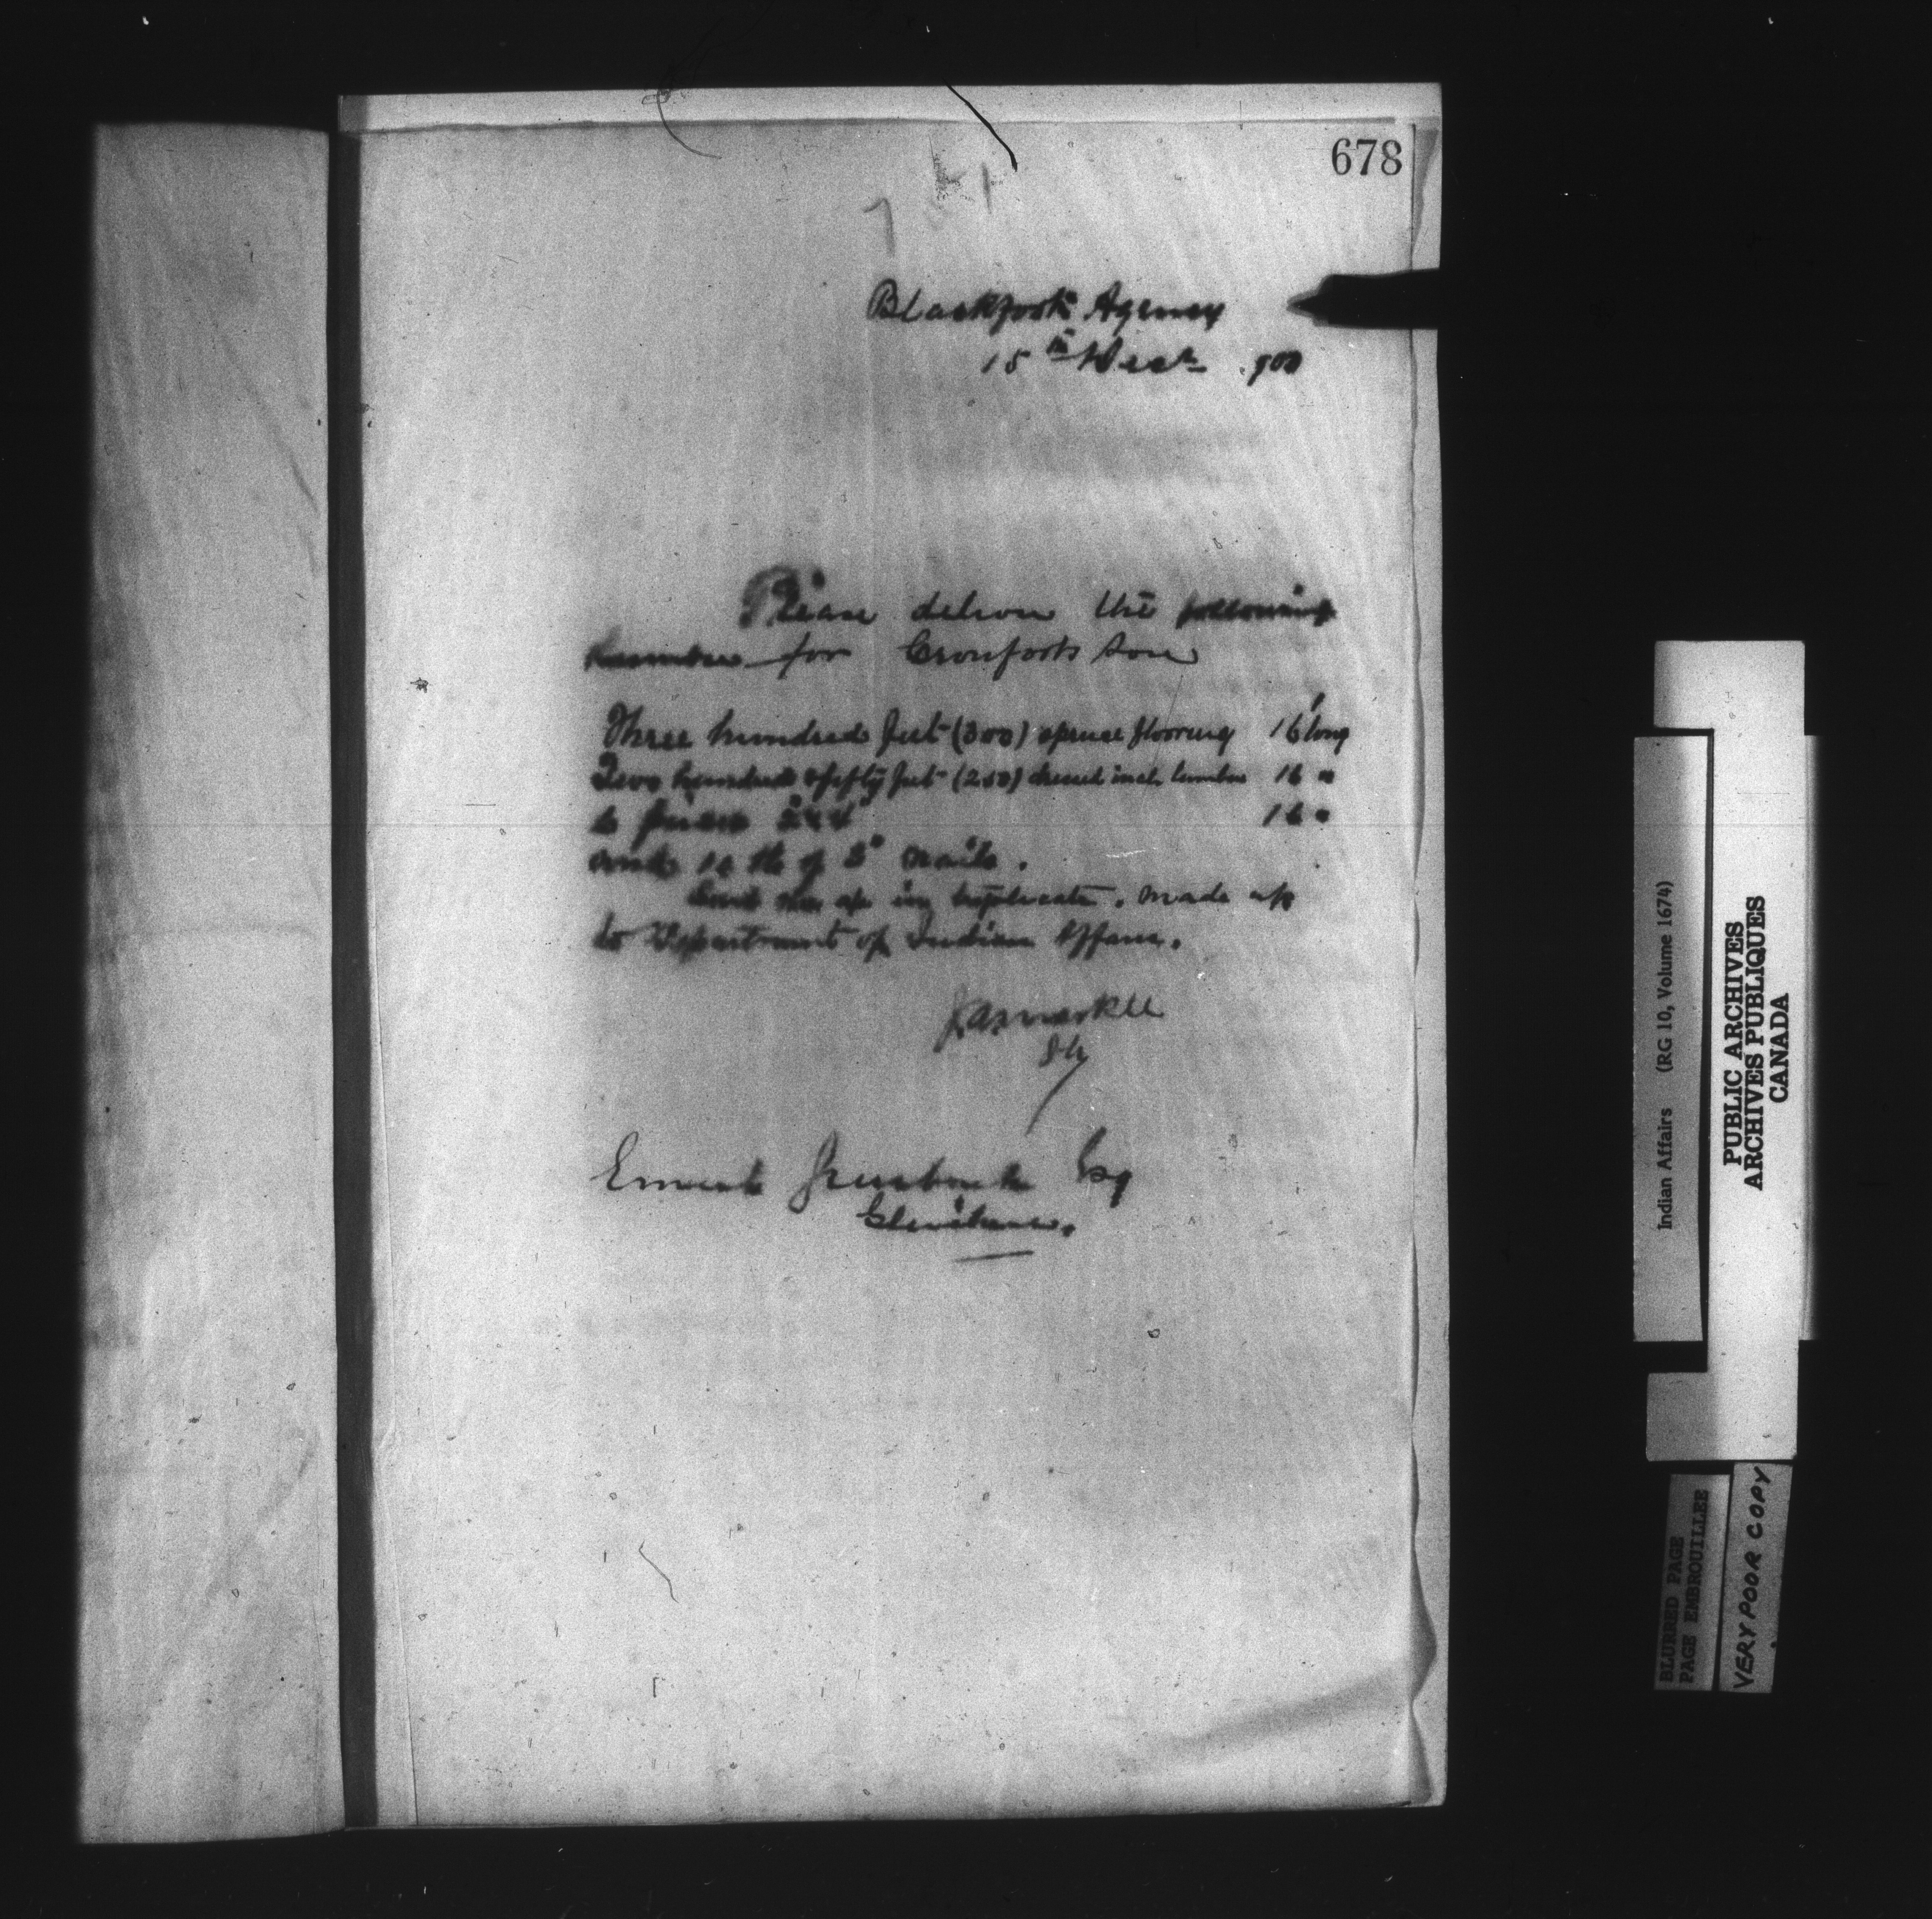 678
Blackfoot Agency
15th Decr 900
Please deliver the following
lumber for Crowfoots son
Three hundred feet (300) spruce flooring 16' long
Two hundred & fifty feet (250) dressed inch lumber 16 "
6 pieces 2" x 4" 16 "
and 10 lb of 3" nails.
Send me a/c in triplicate. made up
to Department of Indian Affairs.
J A Markle
Ernest Esq
Gleichen.
Indian Affairs (RG 10, Volume 1674)
PUBLIC ARCHIVES
ARCHIVES PUBLIQUES
CANADA
BLURRED PAGE
PAGE EMBROUILLEE
VERY POOR COPY